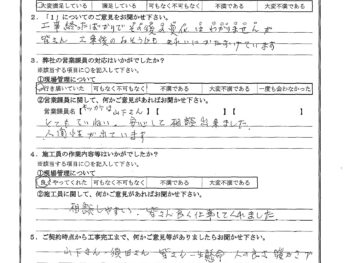 大変満足している 満足している 可もなく不可もなく 不満である 大変不満である
2．「1」についてのご意見をお聞かせ下さい。
工事終ったばかりでその後の変化はわかりませんが
皆さん 工事後のおそうじも きれいにかたづけています
3．弊社の営業課員の対応はいかがでしたか？
※該当する項目に○を記入して下さい。
①現場管理について
行き届いていた 可もなく不可もなく 不満である 大変不満である 一度も会わなかった
②営業課員に関して、何かご意見があればお聞かせ下さい。
営業課員名【 山下さん 】【 】【 】
とてもていねい、安心して相談出来ました
人間性が出ています
4．施工員の作業内容等はいかがでしたか？
※該当する項目に○を記入して下さい。
①現場管理について
良くやってくれた 可もなく不可もなく 不満である 大変不満である
②施工員に関して、何かご意見があればお聞かせ下さい。
相談しやすい、皆さん良く仕事してくれました
5．ご契約時点から工事完工まで、何かご意見等がありましたらお聞かせ下さい。
山下さん 皆さん 一生懸命 人の良さ 暖かさが